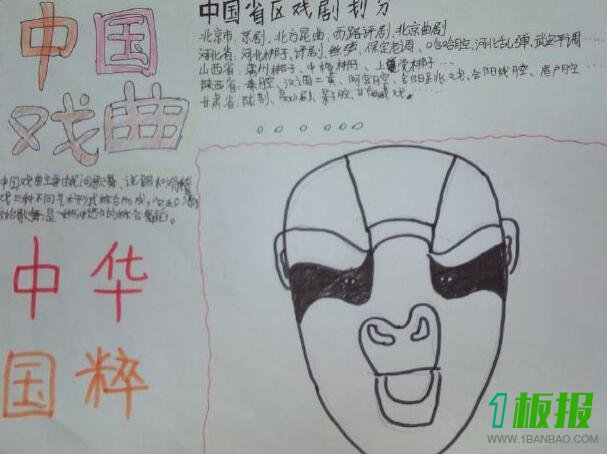 中国
戏曲
中国戏曲主要由民间歌舞、说唱和滑稽
戏三种不同艺术形式综合而成，它起源
原始歌舞，是一种历史悠久的综合舞蹈。
中华
国粹
中国省区戏剧划分
北京市：京剧、北方昆曲、西路评剧、北京曲剧
河北省：河北梆子、评剧、丝弦、保定老调、哈哈腔、河北乱弹、武安平调…
山西省：蒲州梆子、中路梆子、上党梆子…
陕西省：秦腔、汉调二黄、阿宫腔、合阳跳戏、合阳线腔、眉户腔…
甘肃省：陇剧、高山剧、影子腔、甘南藏戏。…
1板报
WWW.1BANBAO.COM